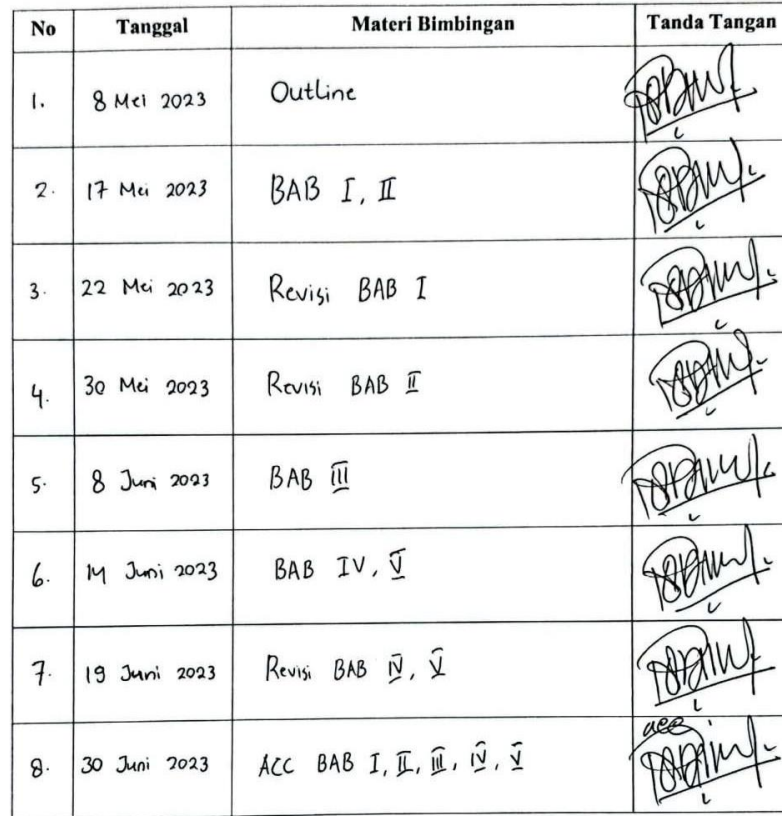 No Tanggal Materi Bimbingan Tanda Tangan
1. 8 Mei 2023 Outline
2. 17 Mei 2023 BAB I, II
3. 22 Mei 2023 Revisi BAB I
4. 30 Mei 2023 Revisi BAB II
5. 8 Juni 2023 BAB III
6. 14 Juni 2023 BAB IV, V
7. 19 Juni 2023 Revisi BAB IV, V
8. 30 Juni 2023 ACC BAB I, II, III, IV, V acc